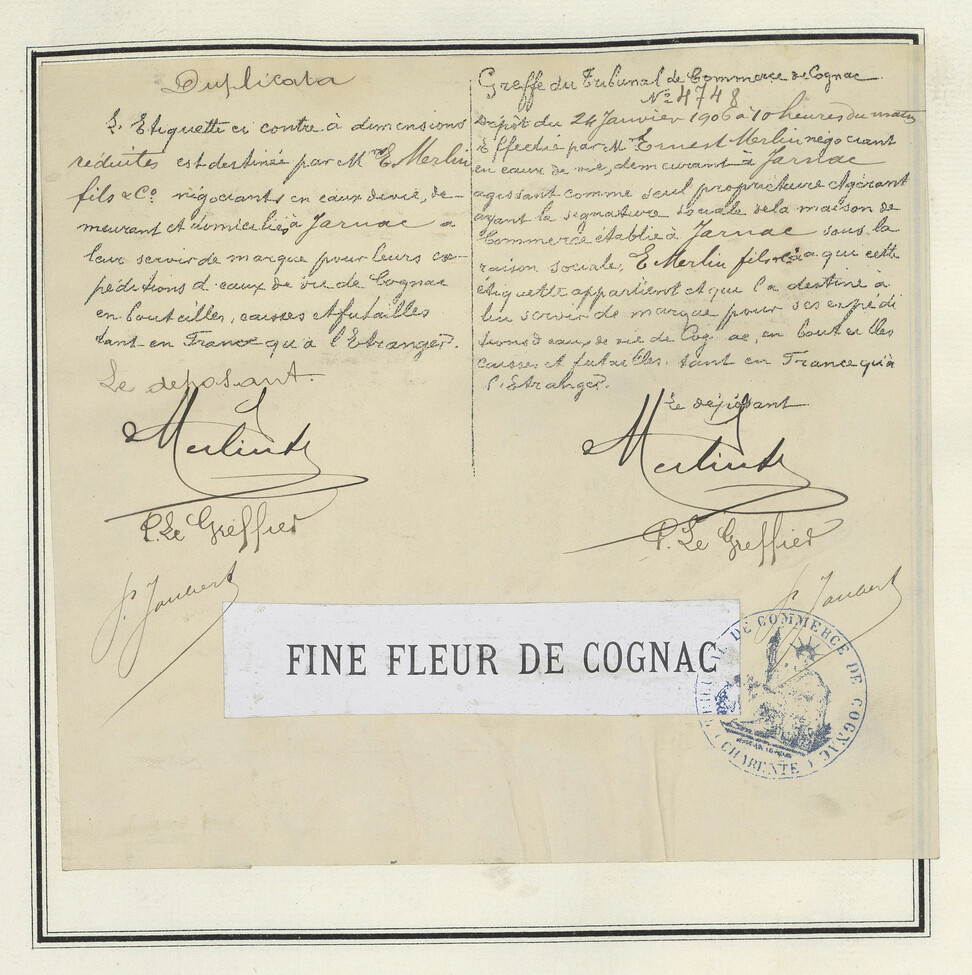 Duplicata
L'Etiquette ci contre à dimensions
réduites est destinée par Mrs E. Merlin
fils & Co. négociants en eaux de vie, de-
meurant et domiciliés à Jarnac a
leur servir de marque pour leurs ex-
péditions d'eaux de vie de Cognac
en bouteilles, caisses et futailles
tant en France qu'à l'Etranger.
Le déposant.
P. Le Greffier
J. Joubert
Greffe du Tribunal de Commerce de Cognac
No 4748
Dépôt du 24 Janvier 1906 à 10 heures du matin
Effectué par Mr Ernest Merlin négociant
en eaux de vie, demeurant à Jarnac
agissant comme seul propriétaire et gérant
ayant la signature sociale de la maison de
Commerce établie à Jarnac sous la
raison sociale, E. Merlin fils & Co a qui cette
étiquette appartient et qui l'a destiné à
lui servir de marque pour ses expédi
tions d'eaux de vie de Cog ac, en bouteilles
caisses et futailles. tant en France qu'à
l'Etranger.
Le déposant
P. Le Greffier
J. Joubert
FINE FLEUR DE COGNAC
TRIBUNAL DE COMMERCE DE COGNAC
(CHARENTE)